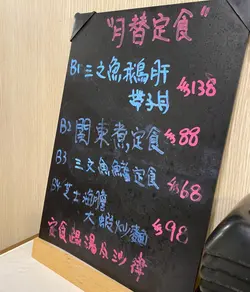 "月替定食"
B1 三文魚鵝肝
$138
B2 関東煮定食 $88
B3 三文魚 定食 $68
B4 芝士海膽
大蝦炒麵 $98
定食跟湯及沙律